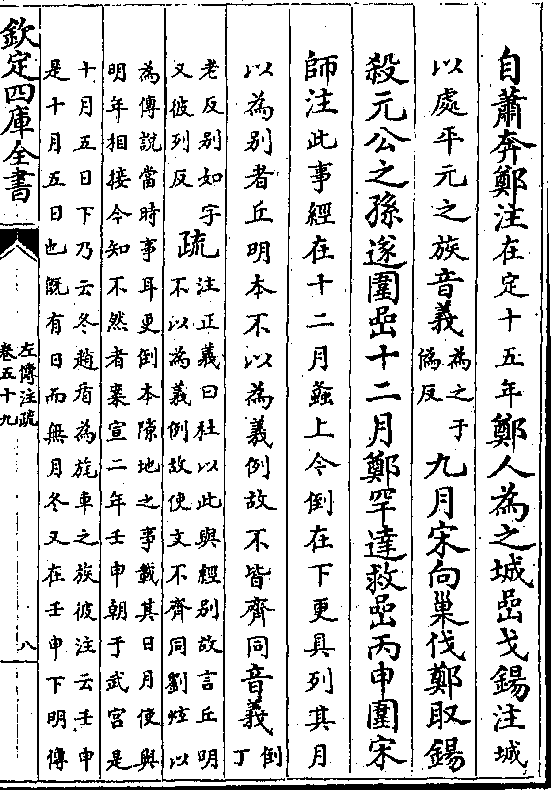 自蕭奔鄭注在定十五年鄭人為之城嵒戈鍚注城
以處平元之族音義為之于偽反九月宋向巢伐鄭取鍚
殺元公之孫遂圍嵒十二月鄭罕達救嵒丙申圍宋
師注此事經在十二月螽上今倒在下更具列其月
以為别者丘明本不以為義例故不皆齊同音義倒丁
老反别如字
又彼列反
疏
注正義曰杜以此與經别故言丘明
不以為義例故使文不齊同劉炫以
為傳說當時事耳更倒本隙地之事載其日月使與
明年相接今知不然者案宣二年壬申朝于武宫是
十月五日下乃云冬趙盾為旄車之族彼注云壬申
是十月五日也既有日而無月冬又在壬申下明傳
欽定四庫全書
左傳注疏
卷五十九
八